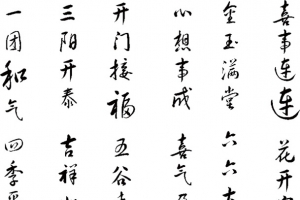 喜事连连
金玉满堂
心想事成
开门接福
三阳开泰
一团和气
花开
六六
喜气
五谷
吉祥
四季